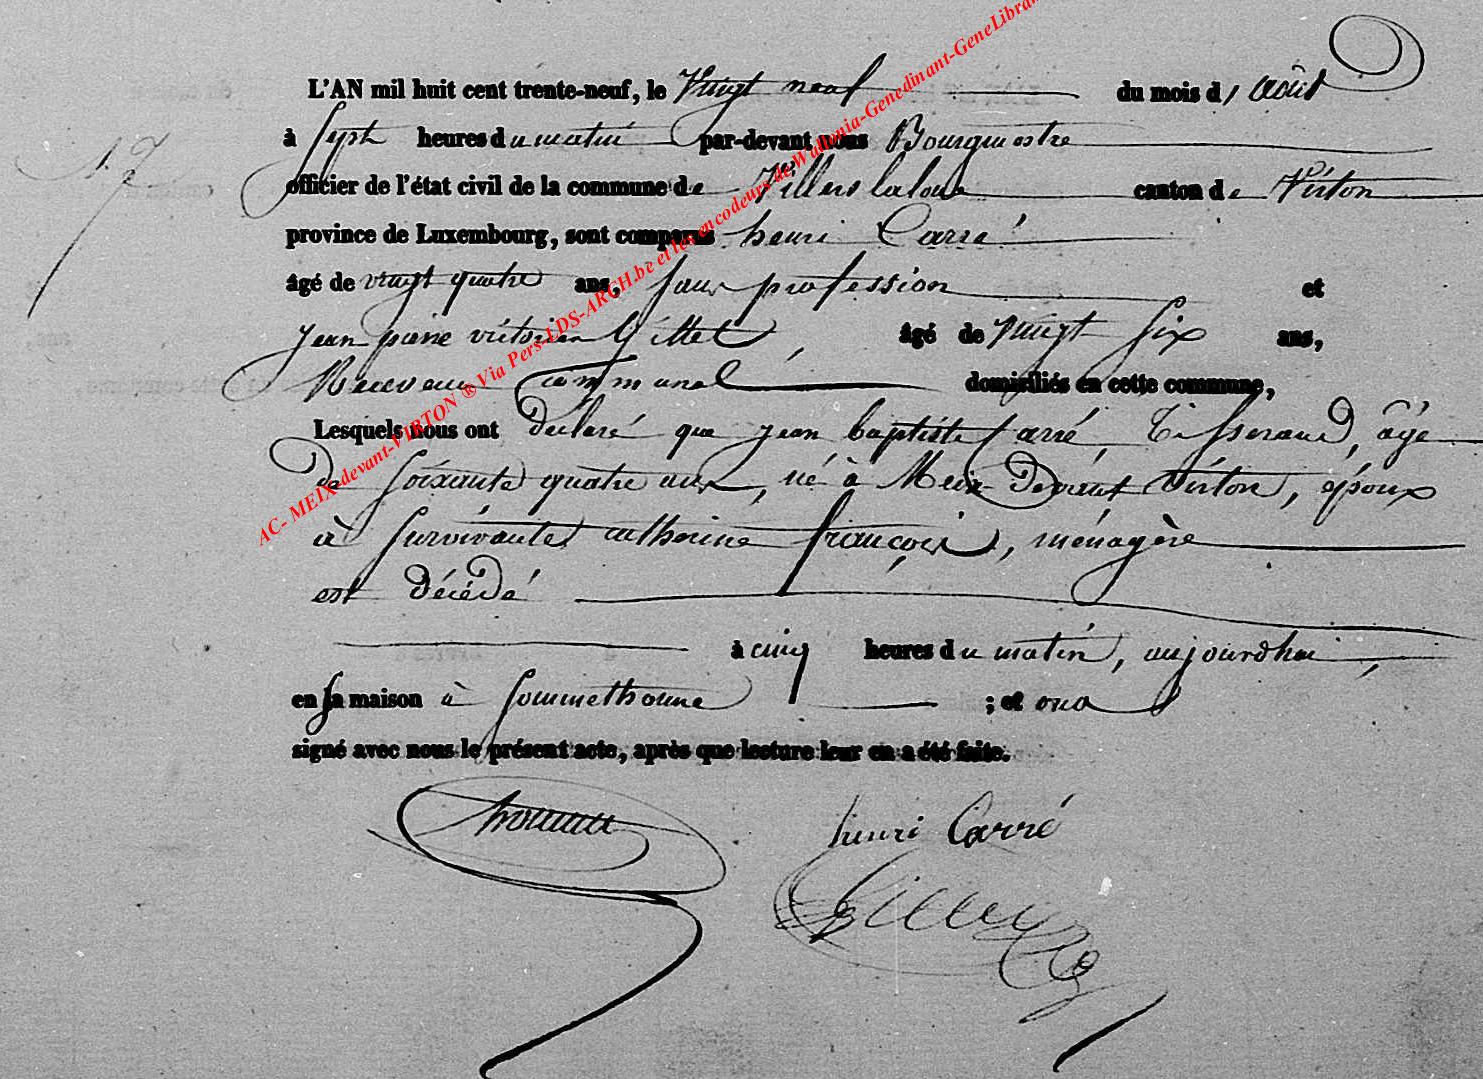 L'AN mil huit cent trente-neuf, le Vingt neuf du mois d'août
17
à Sept heures du matin par-devant nous Bourgmestre
officier de l'état civil de la commune de Villers la loue canton de Virton
province de Luxembourg, sont comparus henri Carré
âgé de vingt quatre ans, sans profession et
jean pierre victorien Gillet, âgé de vingt six ans,
Receveur communal domiciliés en cette commune,
Lesquels nous ont déclaré que jean baptiste Carré, Tisserand, âgé
de soixante quatre ans, né à Meix-Devant Virton, époux
à survivante catherine françois, ménagère
est décédé
à cinq heures du matin, aujourdhui,
en sa maison à Sommethonne ; et ont
signé avec nous le présent acte, après que lecture leur en a été faite.
henri Carré
AC- MEIX-devant-VIRTON ® Via Pers-LDS-ARCH.be et les encodeurs de Wallonia-Genedinant-GeneLibra